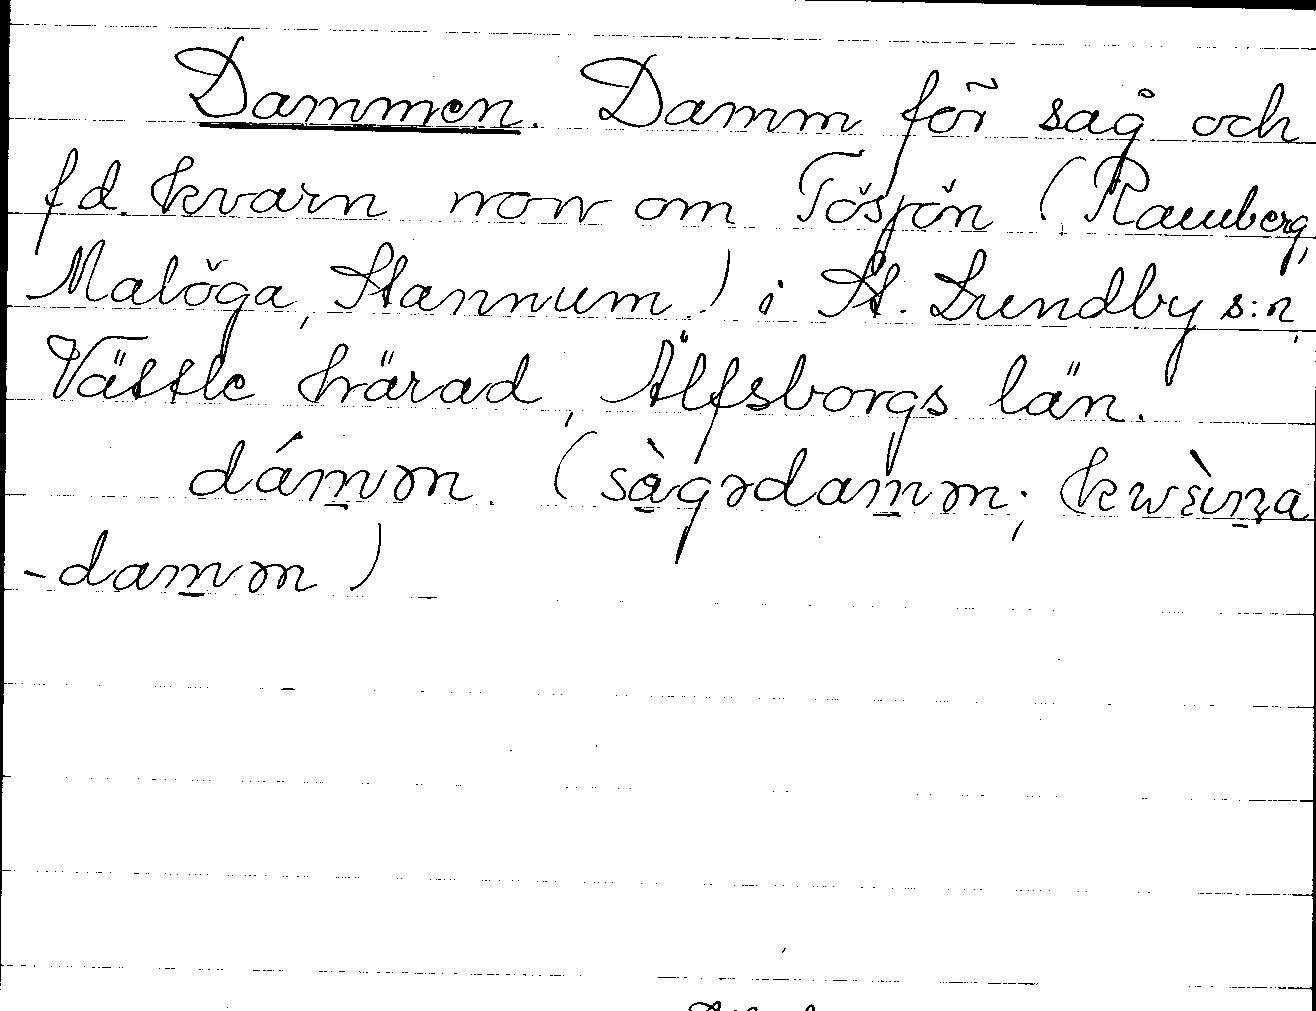 Dammen. Damm för såg och
f d. kvarn norr om Tösjön (Ramberg,
Malöga, Stannum) i St. Lundby s:n,
Vättle härad, Älfsborgs län.
dámәn. (sàgәdamәn;
-damәn)